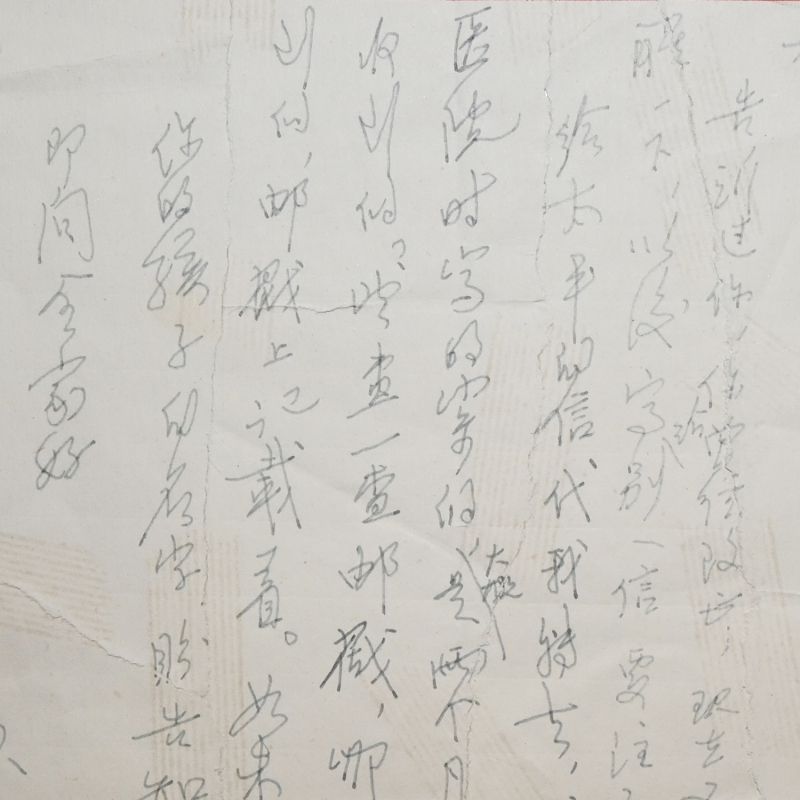 告诉过你,你曾给信改亡,现在
醒一下,以后写别一信要注
给太平的信代我转去,
医院时写的,寄的大概是两个月
收到的?吃查一查邮戳,哪
到的,邮戳上记载着。如未
你的孩子的名字盼告知
即问全家好